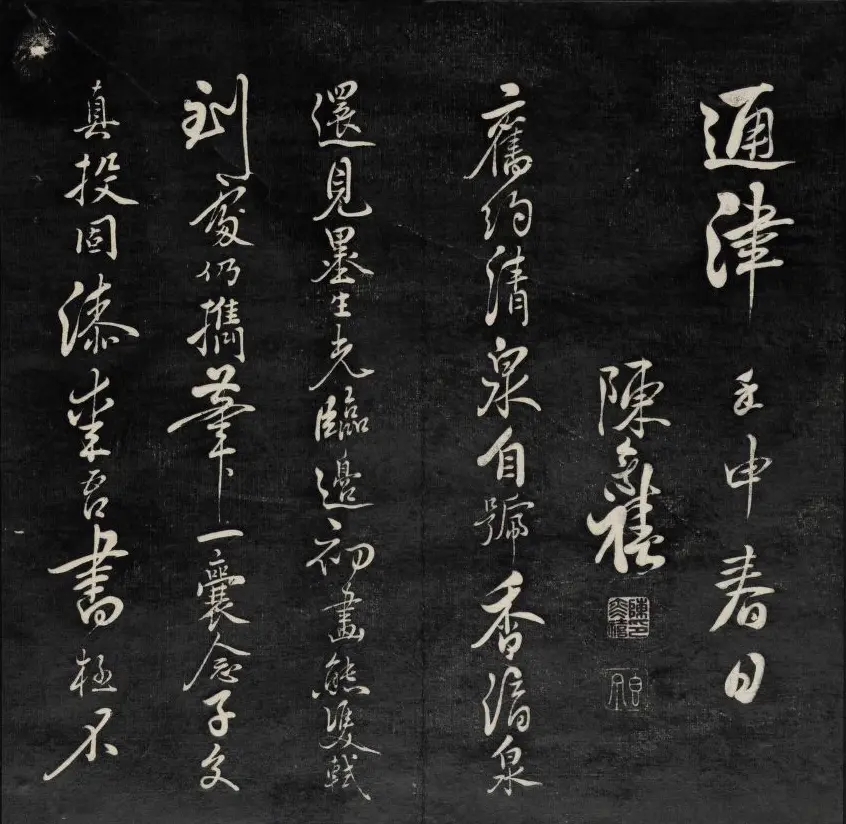 通津 壬申春日
陳奕禧
舊約清泉自號香清泉
還見墨生光臨邊初畫熊雙戟
到處仍攜筆一囊念子交
真投固漆吾書極不